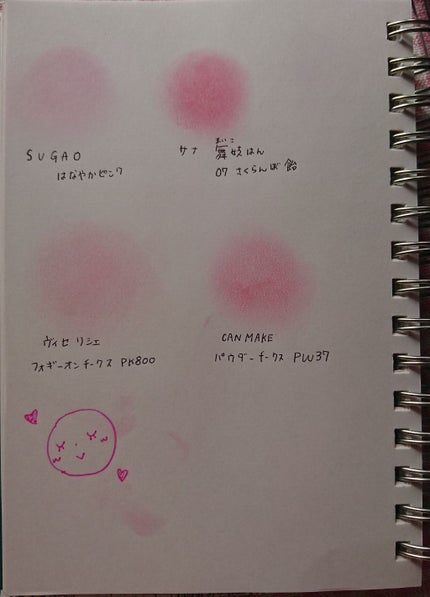 SUGAO
はなやかピンク
サナ 舞妓はん
まいこ
07 さくらんぼ飴
ヴィセ リシェ
フォギーオンチークス PK800
CANMAKE
パウダーチークス PW37